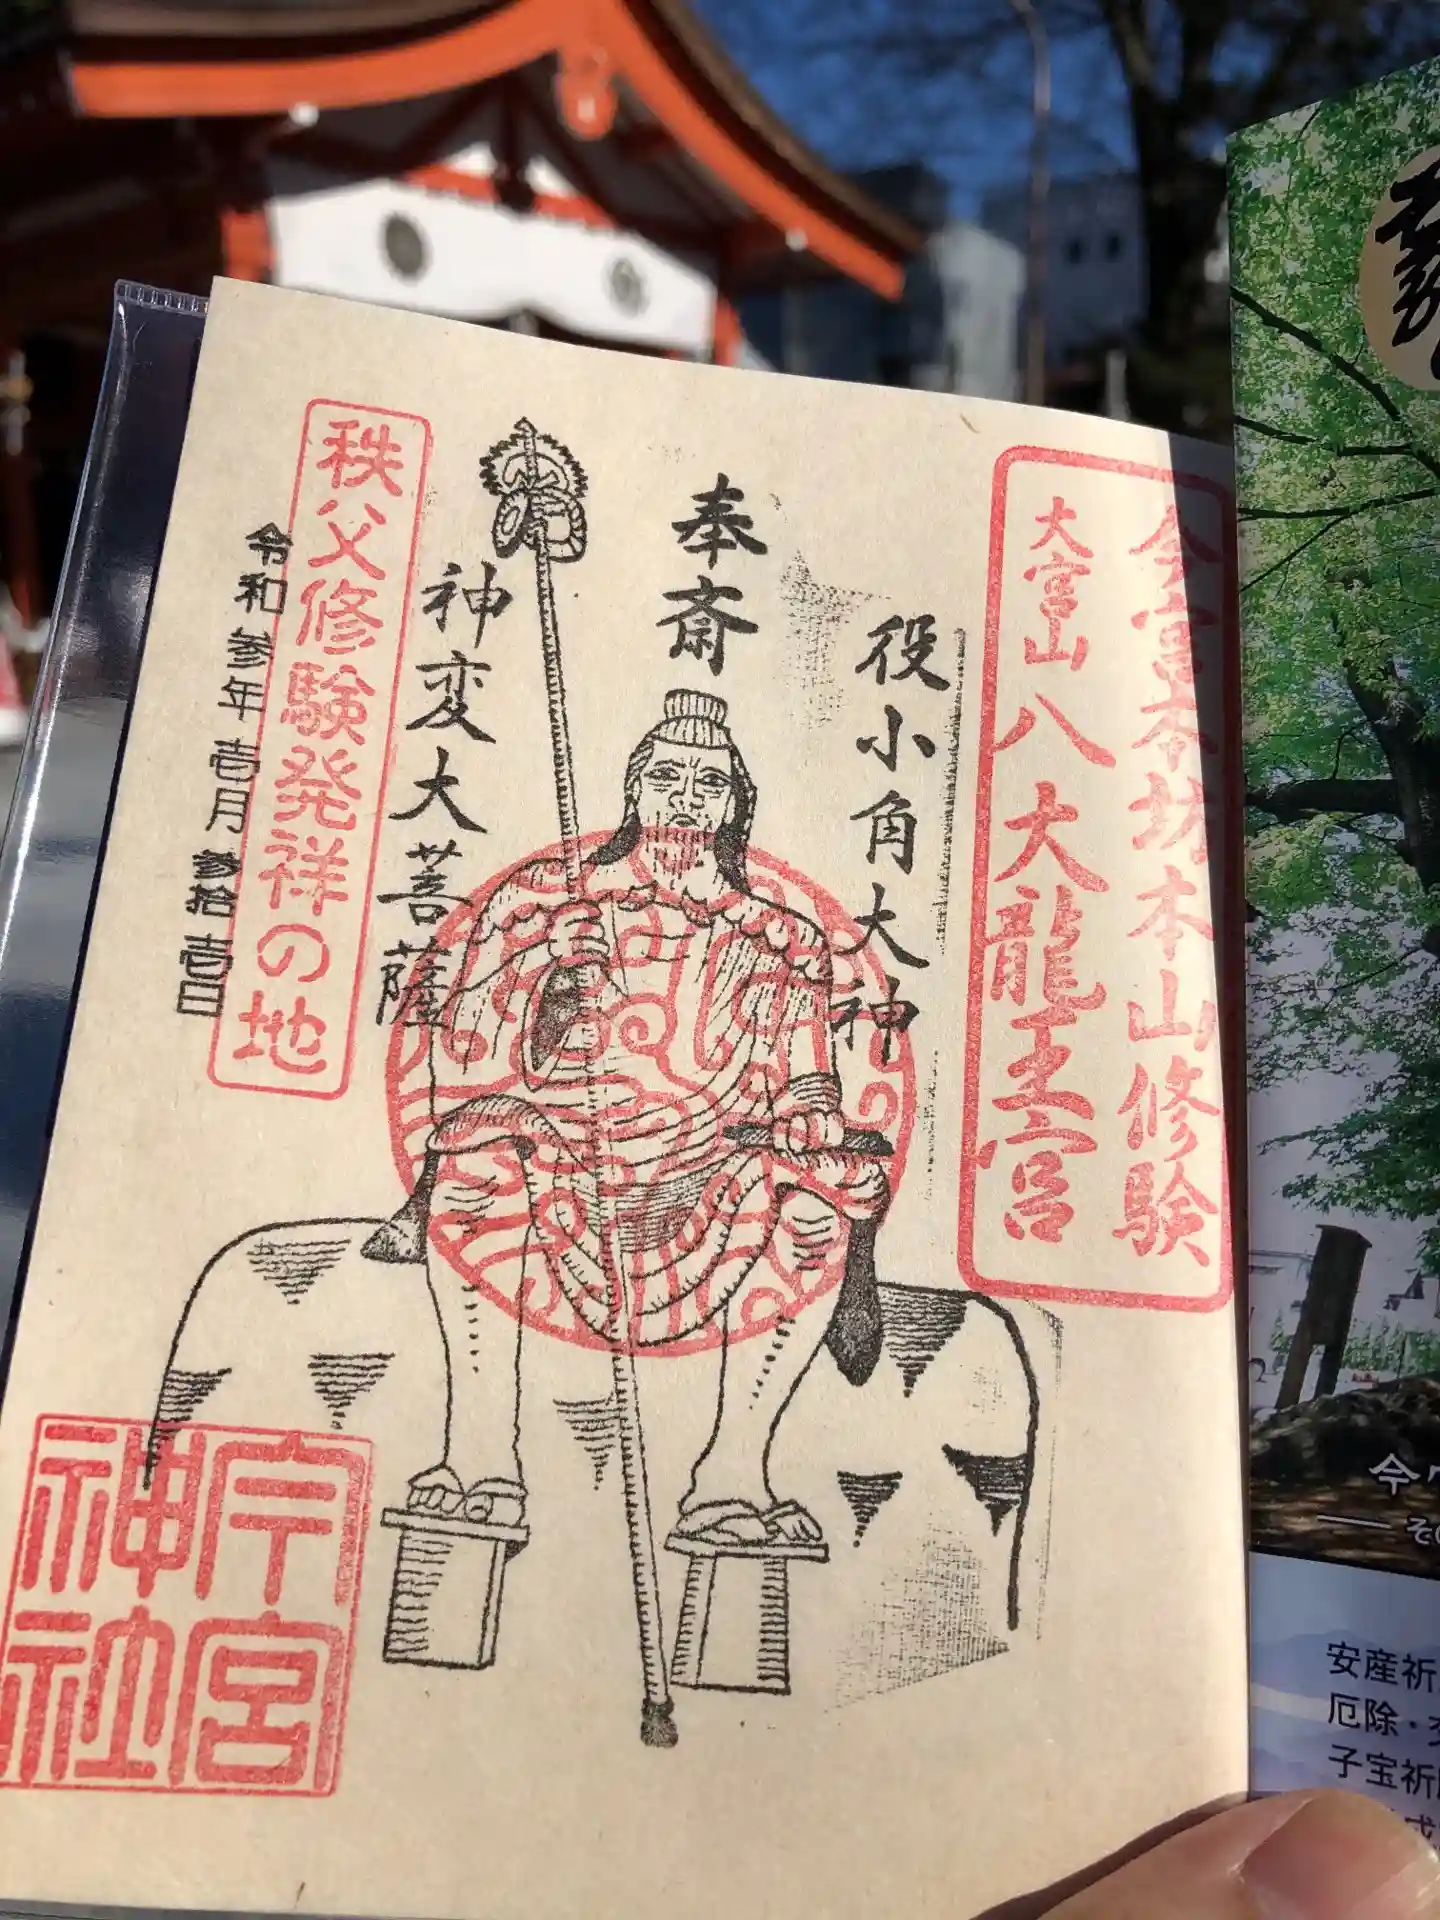 今宮本坊本山修験
大宮山八大龍王宮
役小角大神
奉斎
神変大菩薩
秩父修験発祥の地
令和参年壱月参拾壱日
今宮
神社
安産祈
厄除・
子宝祈